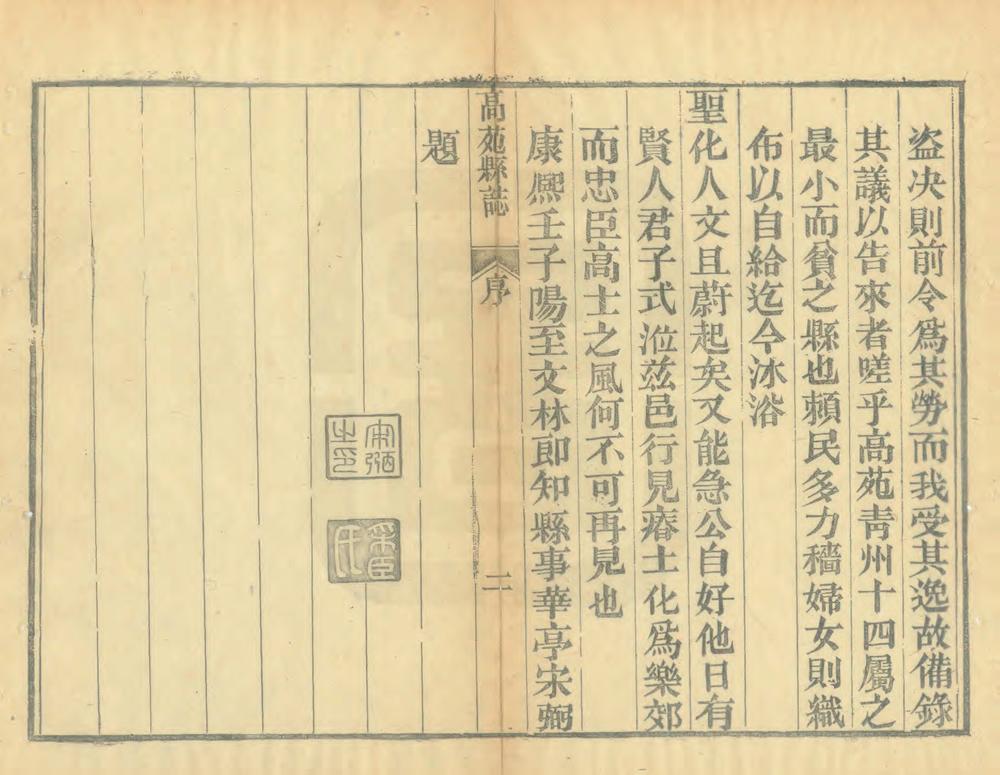 盗决則前令爲其勞而我受其逸故備錄
其議以告來者嗟乎高苑青州十四屬之
最小而貧之縣也頼民多力穡婦女則織
布以自給迄今沐浴
聖化人文且蔚起矣又能急公自好他日有
賢人君子式涖玆邑行見瘠土化爲樂郊
而忠臣高士之風何不可再見也
康熈壬子陽至文林郎知縣事華亭宋弼
高苑縣誌
序
二
題
宋弼之印